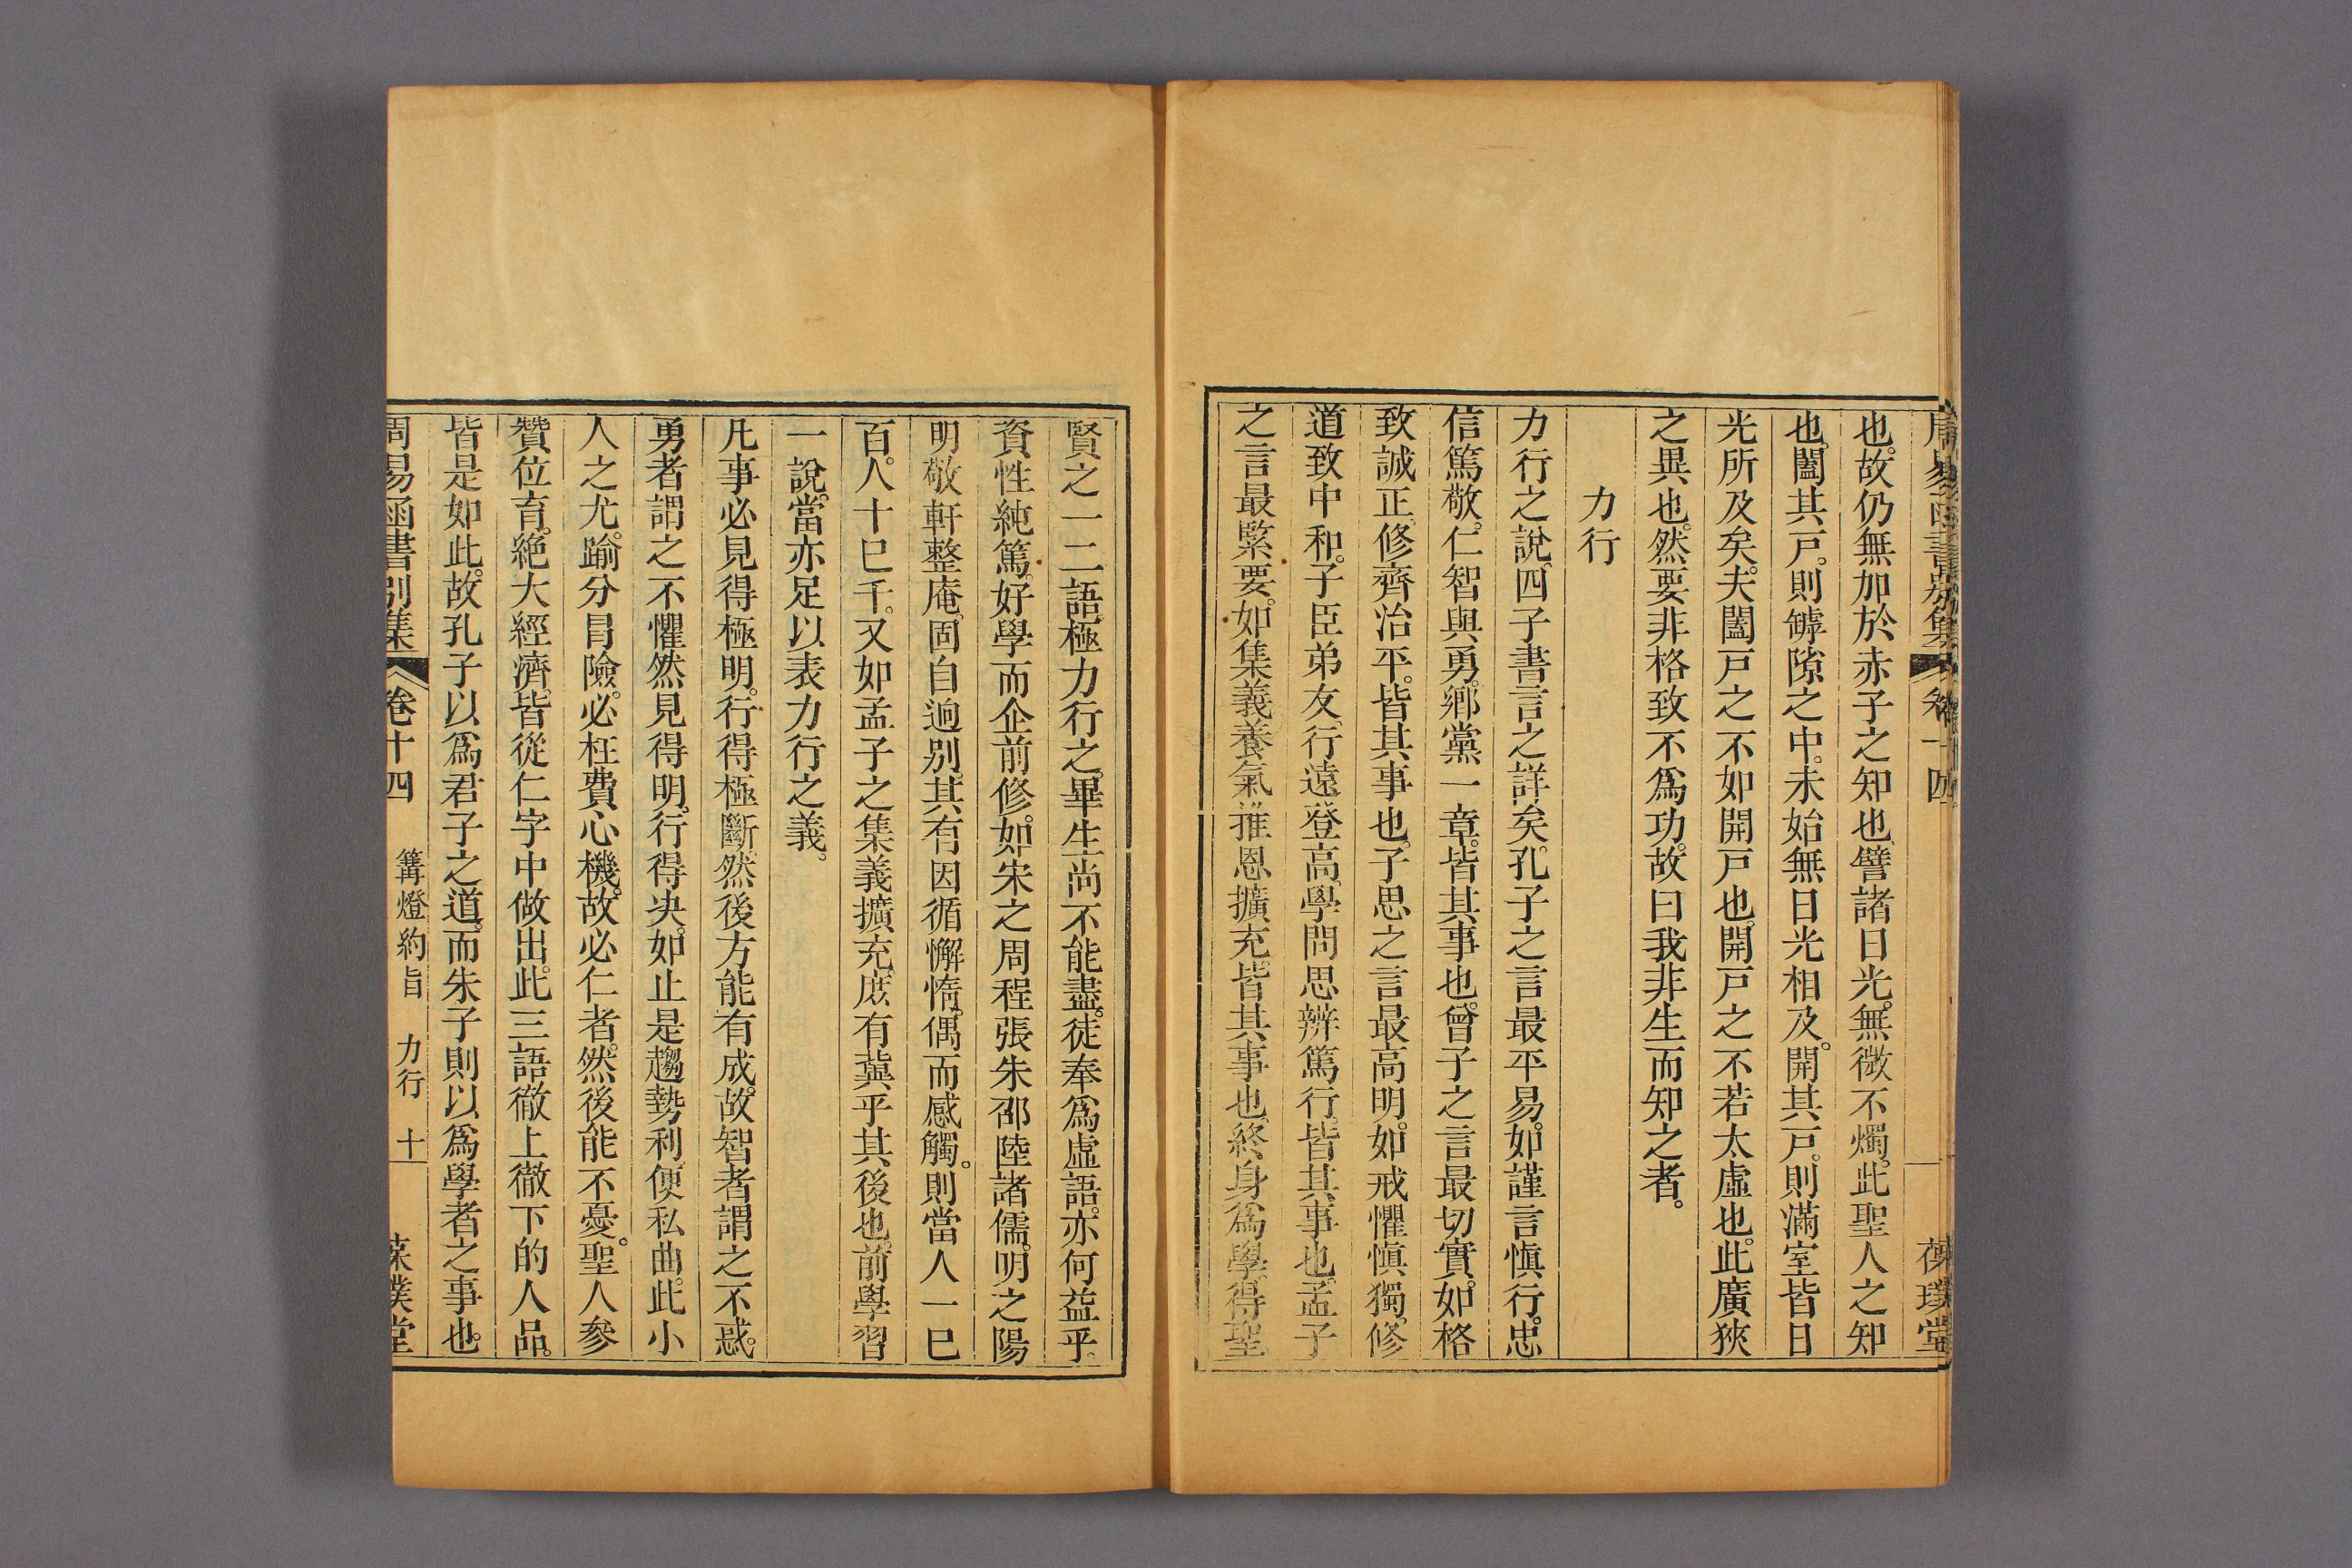 也。故仍無加於赤子之知也。譬諸日光。無微不燭。此聖人之知
也。闔其戸。則罅隙之中。未始無日光相及。開其戸。則滿室皆日
光所及矣。夫闔戸之不如開戸也。開戸之不若太虛也。此廣狹
之異也。然要非格致不爲功。故曰我非生而知之者。
力行
力行之說。四子書言之詳矣。孔子之言最平易。如謹言愼行。忠
信篤敬。仁智與勇。鄕黨一章。皆其事也。曾子之言最切實。如格
致誠正。修齊治平。皆其事也。子思之言最高明。如戒懼愼獨。修
道致中和。子臣弟友。行遠登高。學問思辨篤行。皆其事也。孟子
之言最緊要。如集義養氣。推恩擴充。皆其事也。終身爲學。得聖
賢之一二語。極力行之。畢生尚不能盡。徒奉爲虛語。亦何益乎。
資性純篤。好學而企前修。如宋之周程張朱邵陸諸儒。明之陽
明敬軒整庵。固自逈别。其有因循懈惰。偶而感觸。則當人一已
百。人十已千。又如孟子之集義擴充。庶有冀乎其後也。前學習
一說。當亦足以表力行之義。
凡事必見得極明。行得極斷。然後方能有成。故智者謂之不惑。
勇者謂之不懼。然見得明。行得决。如止是趨勢利便私曲。此小
人之尤。踰分冐險。必枉費心機。故必仁者。然後能不憂。聖人參
贊位育。絶大經濟。皆從仁字中做出。此三語徹上徹下的人品。
皆是如此。故孔子以爲君子之道。而朱子則以爲學者之事也。
周易函書别集 卷十四 篝燈約旨 力行 十 葆璞堂